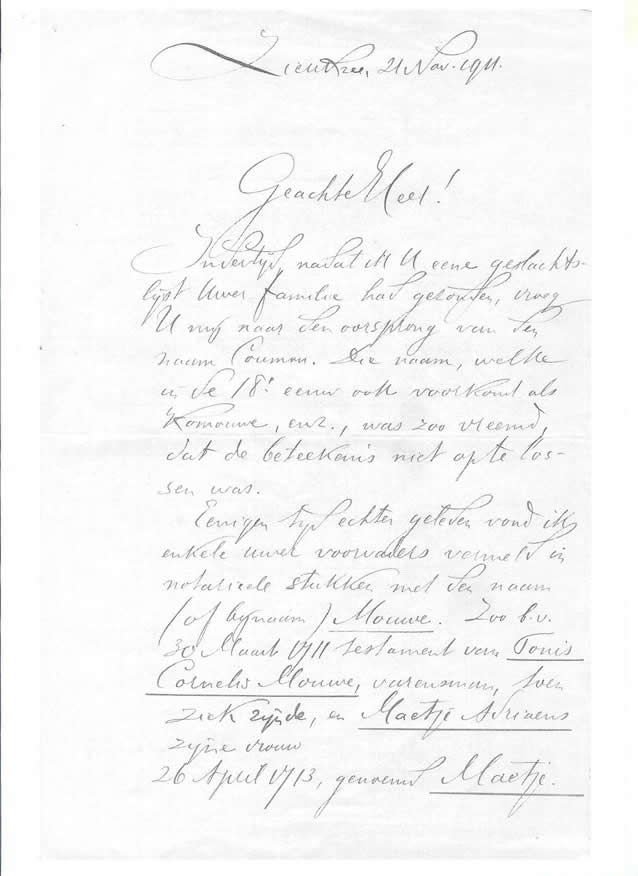 Zierikzee, 21 Nov. 1911.
Geachte Heer!
Indertijd, nadat ik U eene geslachts-
lijst Uwer familie had gezonden, vroeg
U mij naar den oorsprong van den
naam Coumou. Die naam, welke
in de 18e eeuw ook voorkomt als
Komouwe, enz., was zoo vreemd,
dat de beteekenis niet op te los-
sen was.
Eenigen tijd echter geleden vond ik
enkele uwer voorvaders vermeld in
notarieele stukken met den naam
(of bijnaam) Mouwe. Zoo b.v.
30 Maart 1711 testament van Tonis
Cornelis Mouwe, varensman, toen
ziek zijnde, en Maetje Adriaens
zijne vrouw
26 April 1713, genoemd Maetje.